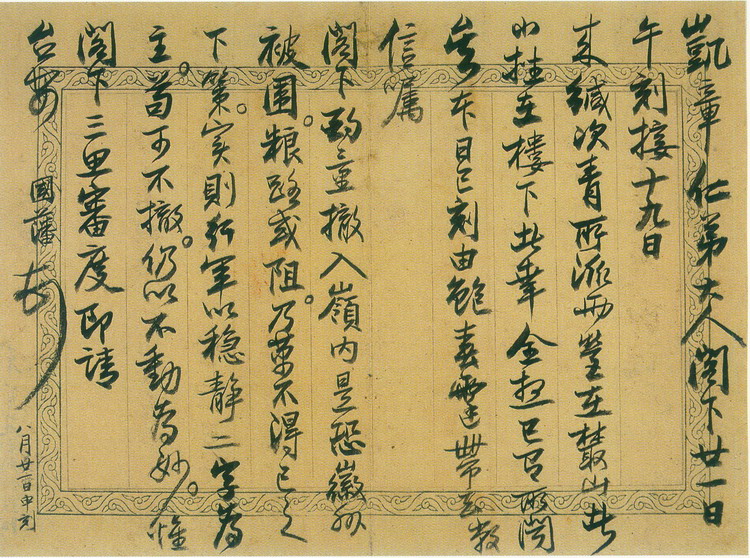 凱章仁弟大人閣下廿一日
午刻接十九日
来緘次青所派兩營在叢山
小挫在樓下幸全想已有所聞
矣本日巳刻由鮑春霆帶去數
信囑
閣下酌量撤入嶺內是恐徽州
被圍。粮路或阻。乃萬不得已之
下策。实則行軍以穩静二字為
主。苟可不撤。仍以不動為妙。惟
閣下三思審度即請
台安 國藩頓
八月廿一日申刻